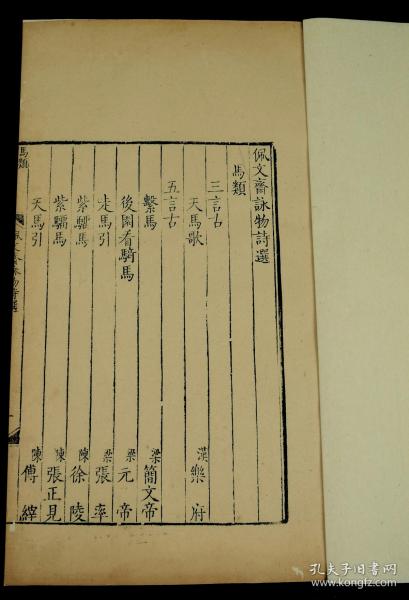 佩文齋詠物詩選
馬類
三言古
天馬歌 漢樂府
五言古
繫馬 梁簡文帝
後園看騎馬 梁元帝
走馬引 梁張率
紫騮馬 陳徐陵
紫騮馬 陳張正見
天馬引 陳傅縡
馬類
佩文齋詠物詩選
孔夫子旧书网
www.kongfz.com